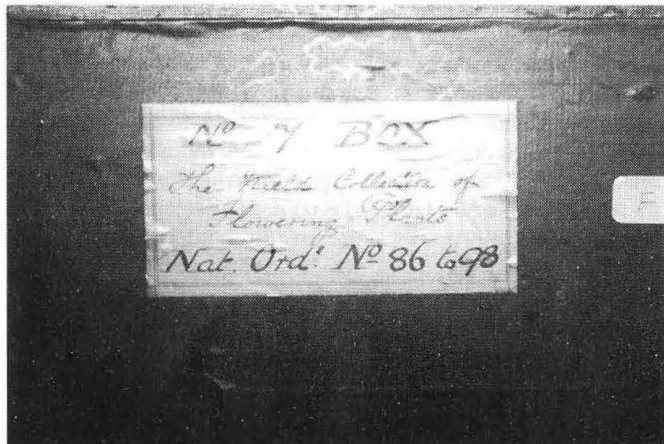 No 7 BOX
The Collection of
Flowering Plants
Nat. Ords. No 86 to 98
F